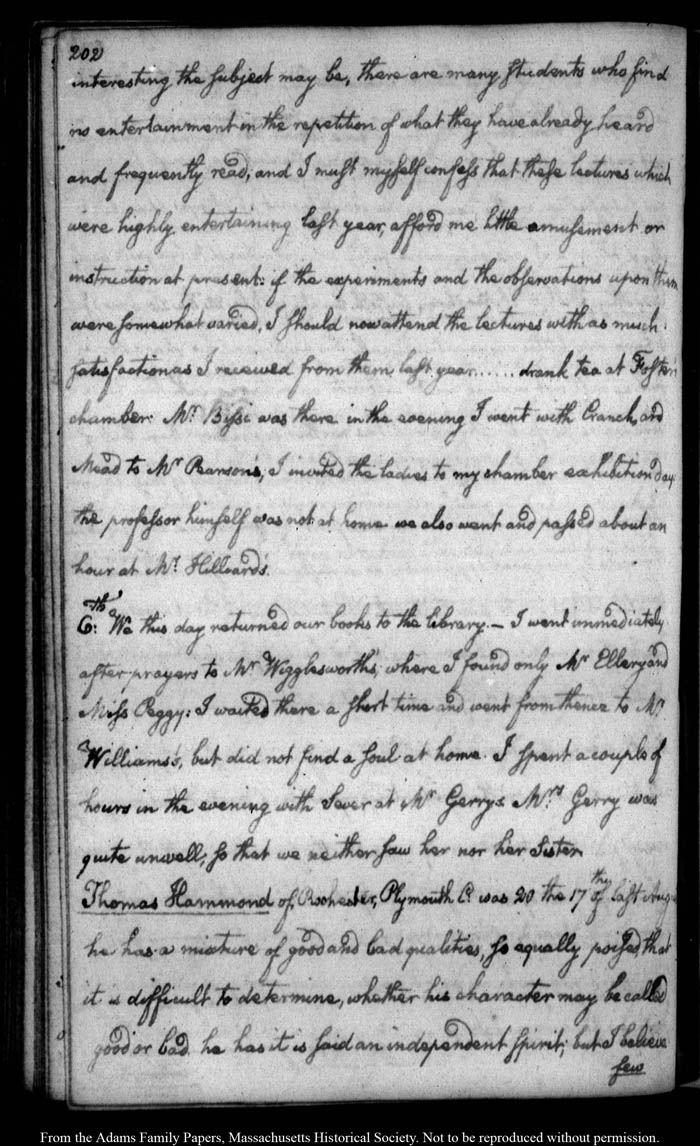 202
interesting the subject may be, there are many students who find
no entertainment in the repetition of what they have already heard
and frequently read, and I must myself confess that these lectures which
were highly entertaining last year, afford me little amusement or
instruction at present: if the experiments and the observations upon them
were somewhat varied, I should now attend the lectures with as much
satisfaction as I received from them, last year...... drank tea at Foster's
chamber: Mr. Bissi was there in the evening I went with Cranch, and
Mead to Mr Pearson's, I invited the ladies to my chamber exhibition day
the professor himself was not at home we also went and passed about an
hour at Mr. Hilliard's.
6th: We this day returned our books to the library. — I went immediately
after prayers to Mr Wigglesworth's, where I found only Mr Ellery and
Miss Peggy: I waited there a short time and went from thence to Mr.
Williams's, but did not find a soul at home. I spent a couple of
hours in the evening with Sever at Mr Gerry's Mrs. Gerry was
quite unwell, so that we neither saw her nor her Sister.
Thomas Hammond of Rochester, Plymouth C. was 20 the 17th of last Augst
he has a mixture of good and bad qualities, so equally poised, that
it is difficult to determine, whether his character may be called
good or bad. he has it is said an independent spirit; but I believe
few
From the Adams Family Papers, Massachusetts Historical Society. Not to be reproduced without permission.